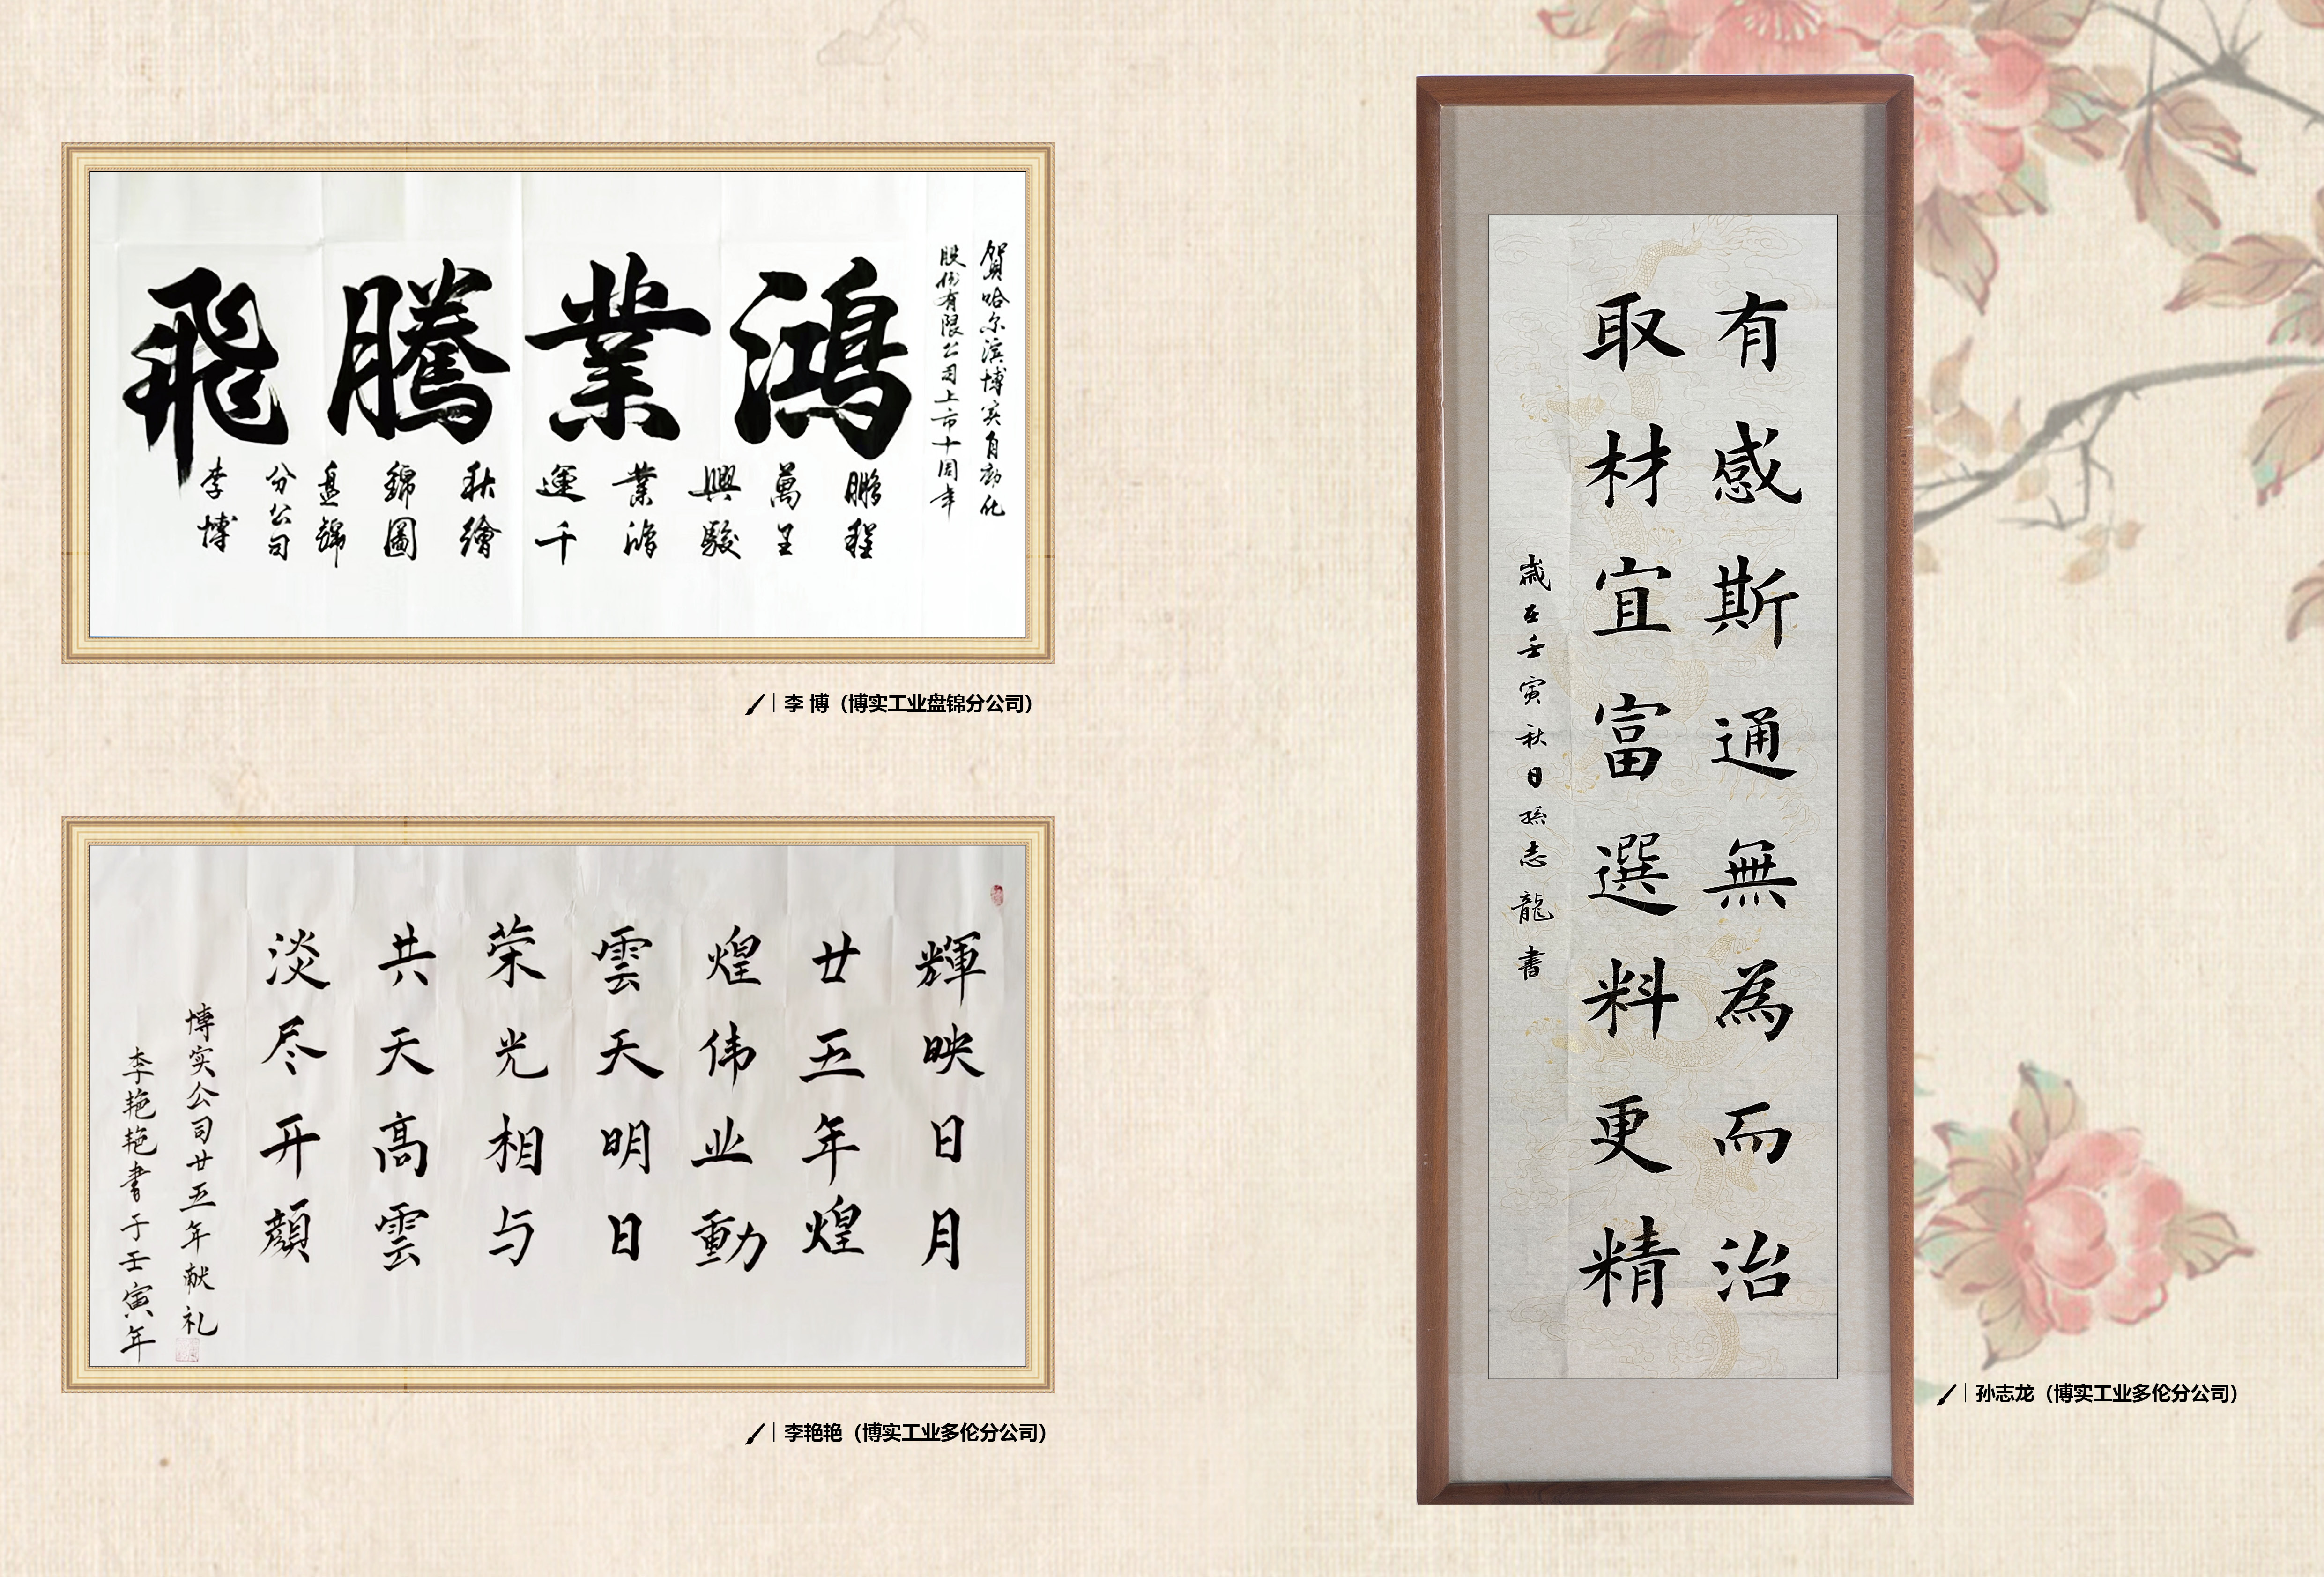 賀哈尔滨博实自动化
股份有限公司上市十周年
鴻業騰飛
鵬程
萬里
興駿
業鴻
運千
秋繪
錦圖
盘錦
分公司
李博
李 博（博实工业盘锦分公司）
輝映日月
廿五年煌
煌伟业動
雲天明日
荣光相与
共天高雲
淡尽开顔
博实公司廿五年献礼
李艳艳書于壬寅年
李艳艳（博实工业多伦分公司）
有感斯通無為而治
取材宜富選料更精
歲在壬寅秋日孫志龍書
孙志龙（博实工业多伦分公司）